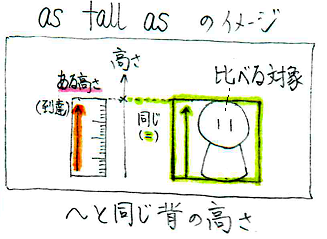 as tall as のイメージ
高さ
ある高さ
(到達)
同じ
(=)
比べる対象
〜と同じ背の高さ